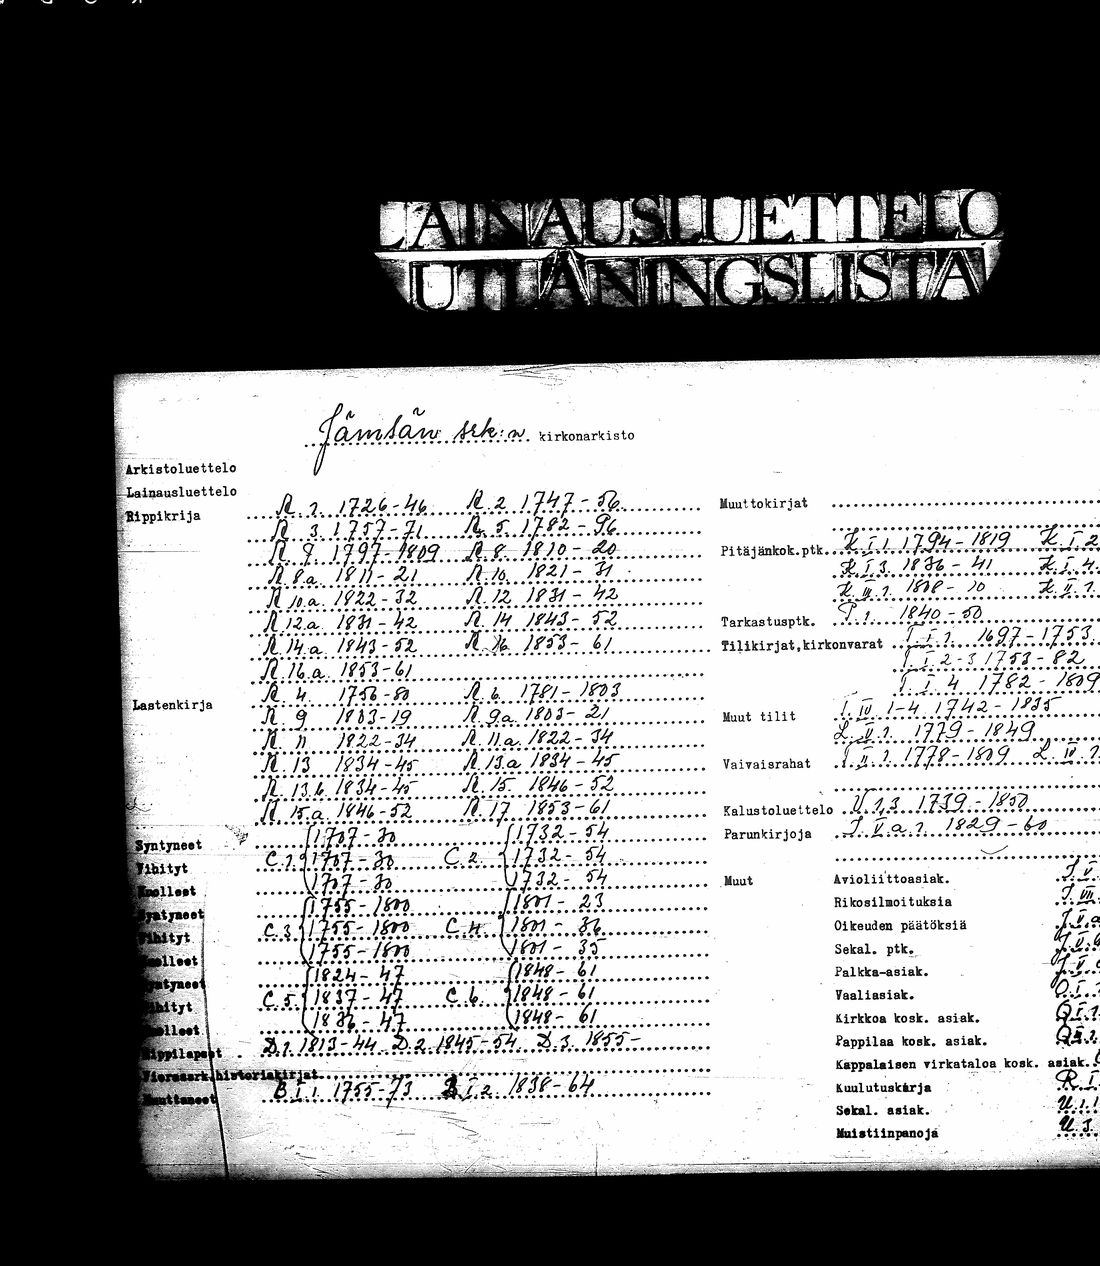 LAINAUSLUETTELO
UTLÅNINGSLISTA
Jämsän srk:n kirkonarkisto
Arkistoluettelo
Lainausluettelo
Rippikrija R. 1. 1726-46 R. 2 1747-56
R. 3. 1757-71 R. 5. 1782-96
R. 7. 1797-1809 R. 8. 1810-20
R. 8a. 1811-21 R. 10. 1821-31
R. 10.a. 1822-32 R. 12 1831-42
R. 12.a 1831-42 R. 14 1843-52
R. 14.a 1843-52 R. 16. 1853-61
R. 16.a. 1853-61
Lastenkirja R. 4. 1756-80 R. 6. 1781-1803
R. 9 1803-19 R. 9a 1803-21
R. 11 1822-34 R. 11.a 1822-34
R. 13 1834-45 R. 13.a 1834-45
R. 13.b. 1834-45 R. 15. 1846-52
R. 15.a 1846-52 R. 17. 1853-61
Syntyneet 1707-30 1732-54
Vihityt C. 1. 1707-30 C. 2. 1732-54
Kuolleet 1707-30 1732-54
Syntyneet 1755-1800 1801-23
Vihityt C. 3. 1755-1800 C. 4. 1801-36
Kuolleet 1755-1800 1801-35
Syntyneet 1824-47 1848-61
Vihityt C. 5. 1837-47 C. 6. 1848-61
Kuolleet 1836-47 1848-61
Rippilapset D. 1. 1813-44 D. 2. 1845-54 D. 3. 1855-
historiakirjat
Muuttaneet B. I. 1. 1755-73 B. I. 2. 1838-64
Muuttokirjat
Pitäjänkok.ptk. K. I. 1. 1794-1819 K. I. 2
K. I. 3. 1836-41 K. I. 4.
K. II. 1. 1808-10 K. II. 1.
Tarkastusptk. P. 1. 1840-50
Tilikirjat,kirkonvarat T. I. 1. 1697-1753
T. I. 2-3 1753-82
T. I. 4 1782-1809
Muut tilit 1-4 1742-1835
1779-1849
Vaivaisrahat 1778-1809
Kalustoluettelo V. 1,3. 1739-1850
Parunkirjoja J. V. a. 1. 1829-60
Muut Avioliittoasiak. J. V.
Rikosilmoituksia J. VII.
Oikeuden päätöksiä
Sekal. ptk.
Palkka-asiak.
Vaaliasiak. O. I.
Kirkkoa kosk. asiak.
Pappilaa kosk. asiak.
Kappalaisen virkataloa kosk. asiak.
Kuulutuskirja R. I.
Sekal. asiak. U. 1.
Muistiinpanoja U. 3.